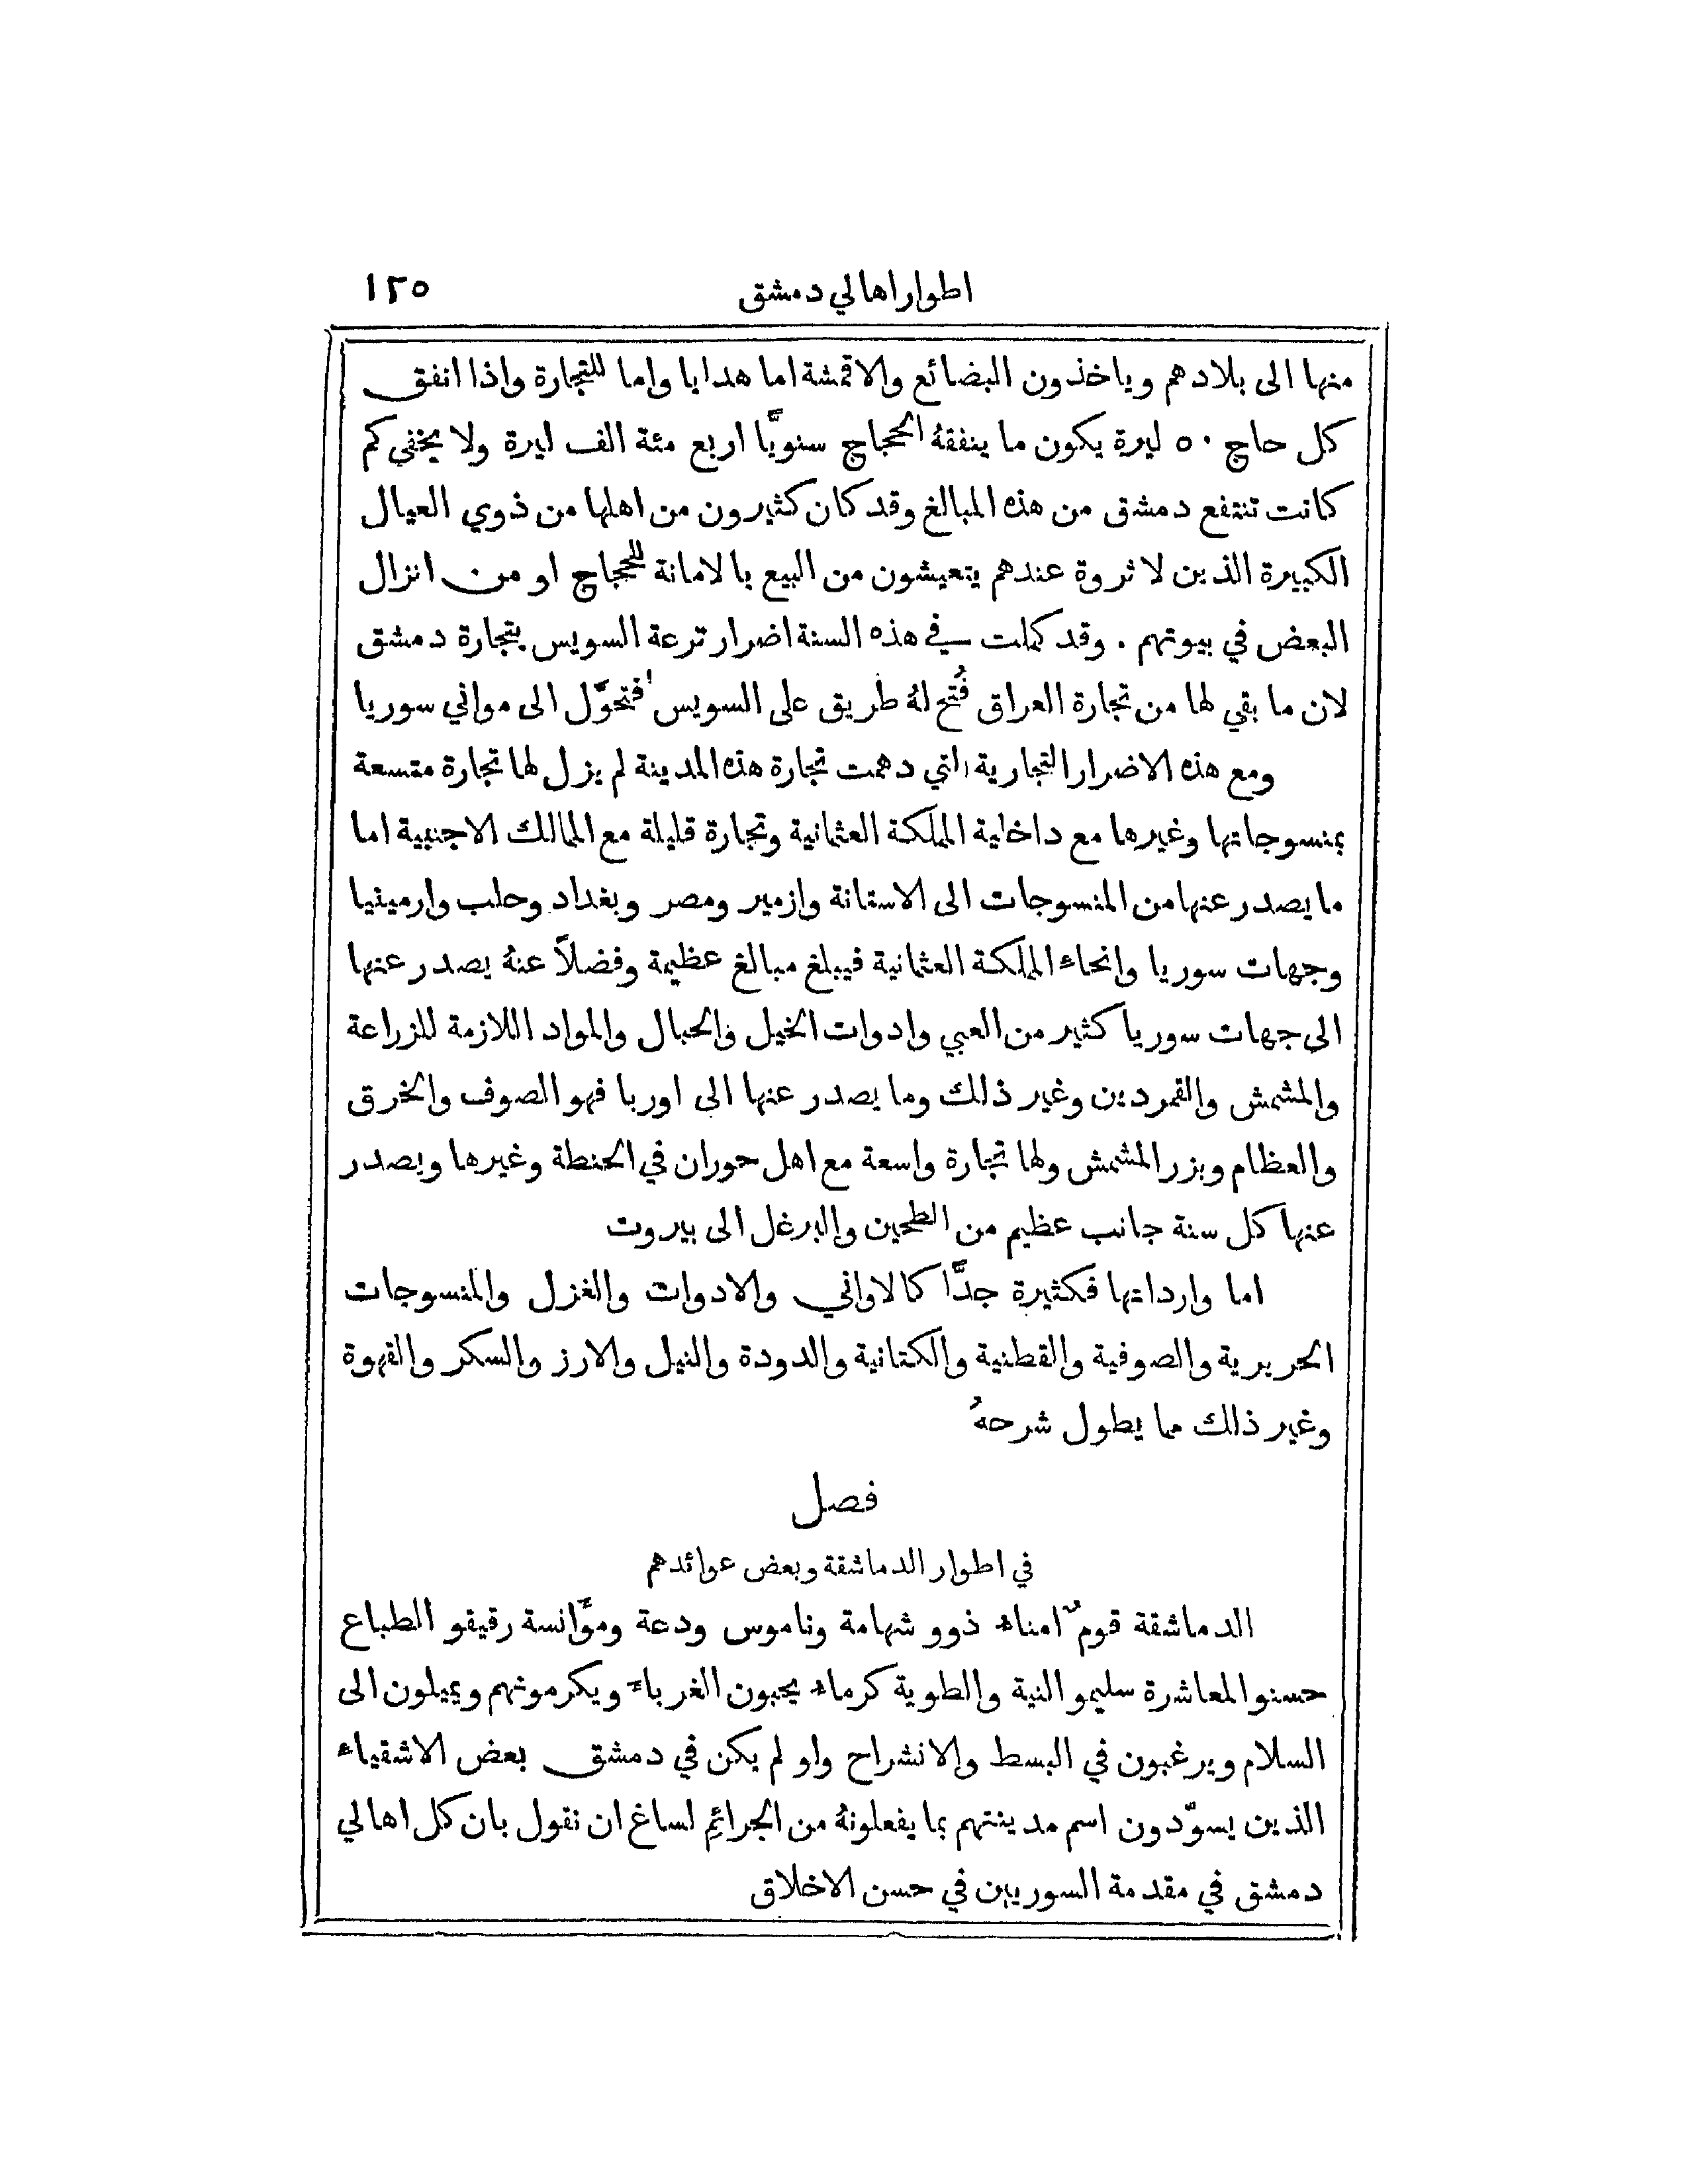 اطوار اهالي دمشق ١٢٥
منها الى بلادهم وياخذون البضائع والاقمشة اما هدايا واما للتجارة واذا انفق
كل حاج ٥٠ ليرة يكون ما ينفقهُ الحجاج سنويًّا اربع مئة الف ليرة ولا يخفي كم
كانت تنتفع دمشق من هذه المبالغ وقد كان كثيرون من اهلها من ذوي العيال
الكبيرة الذين لا ثروة عندهم يتعيشون من البيع بالامانة للحجاج او من انزال
البعض في بيوتهم . وقد كملت في هذه السنة اضرار ترعة السويس بتجارة دمشق
لان ما بقي لها من تجارة العراق فُتح لهُ طريق على السويس فتحوَّل الى مواني سوريا
ومع هذه الاضرار التجارية التي دهمت تجارة هذه المدينة لم يزل لها تجارة متسعة
بمنسوجاتها وغيرها مع داخلية المملكة العثمانية وتجارة قليلة مع الممالك الاجنبية اما
ما يصدر عنها من المنسوجات الى الاستانة وازمير ومصر وبغداد وحلب وارمينيا
وجهات سوريا وانحاء المملكة العثمانية فيبلغ مبالغ عظيمة وفضلاً عنهُ يصدر عنها
الى جهات سوريا كثير من العبي وادوات الخيل والحبال والمواد اللازمة للزراعة
والمشمش والقمردين وغير ذلك وما يصدر عنها الى اوربا فهو الصوف والخرق
والعظام وبزر المشمش ولها تجارة واسعة مع اهل حوران في الحنطة وغيرها ويصدر
عنها كل سنة جانب عظيم من الطحين والبرغل الى بيروت
اما وارداتها فكثيرة جدًّا كالاواني والادوات والغزل والمنسوجات
الحريرية والصوفية والقطنية والكتانية والدودة والنيل والارز والسكر والقهوة
وغير ذلك مما يطول شرحهُ
فصل
في اطوار الدماشقة وبعض عوائدهم
الدماشقة قومٌ امناء ذوو شهامة وناموس ودعة وموَّانسة رقيقو الطباع
حسنو المعاشرة سليمو النية والطوية كرماء يحبون الغرباء ويكرمونهم ويميلون الى
السلام ويرغبون في البسط والانشراح ولو لم يكن في دمشق بعض الاشقياء
الذين يسوّدون اسم مدينتهم بما يفعلونهُ من الجرائمِ لساغ ان نقول بان كل اهالي
دمشق في مقدمة السوريين في حسن الاخلاق